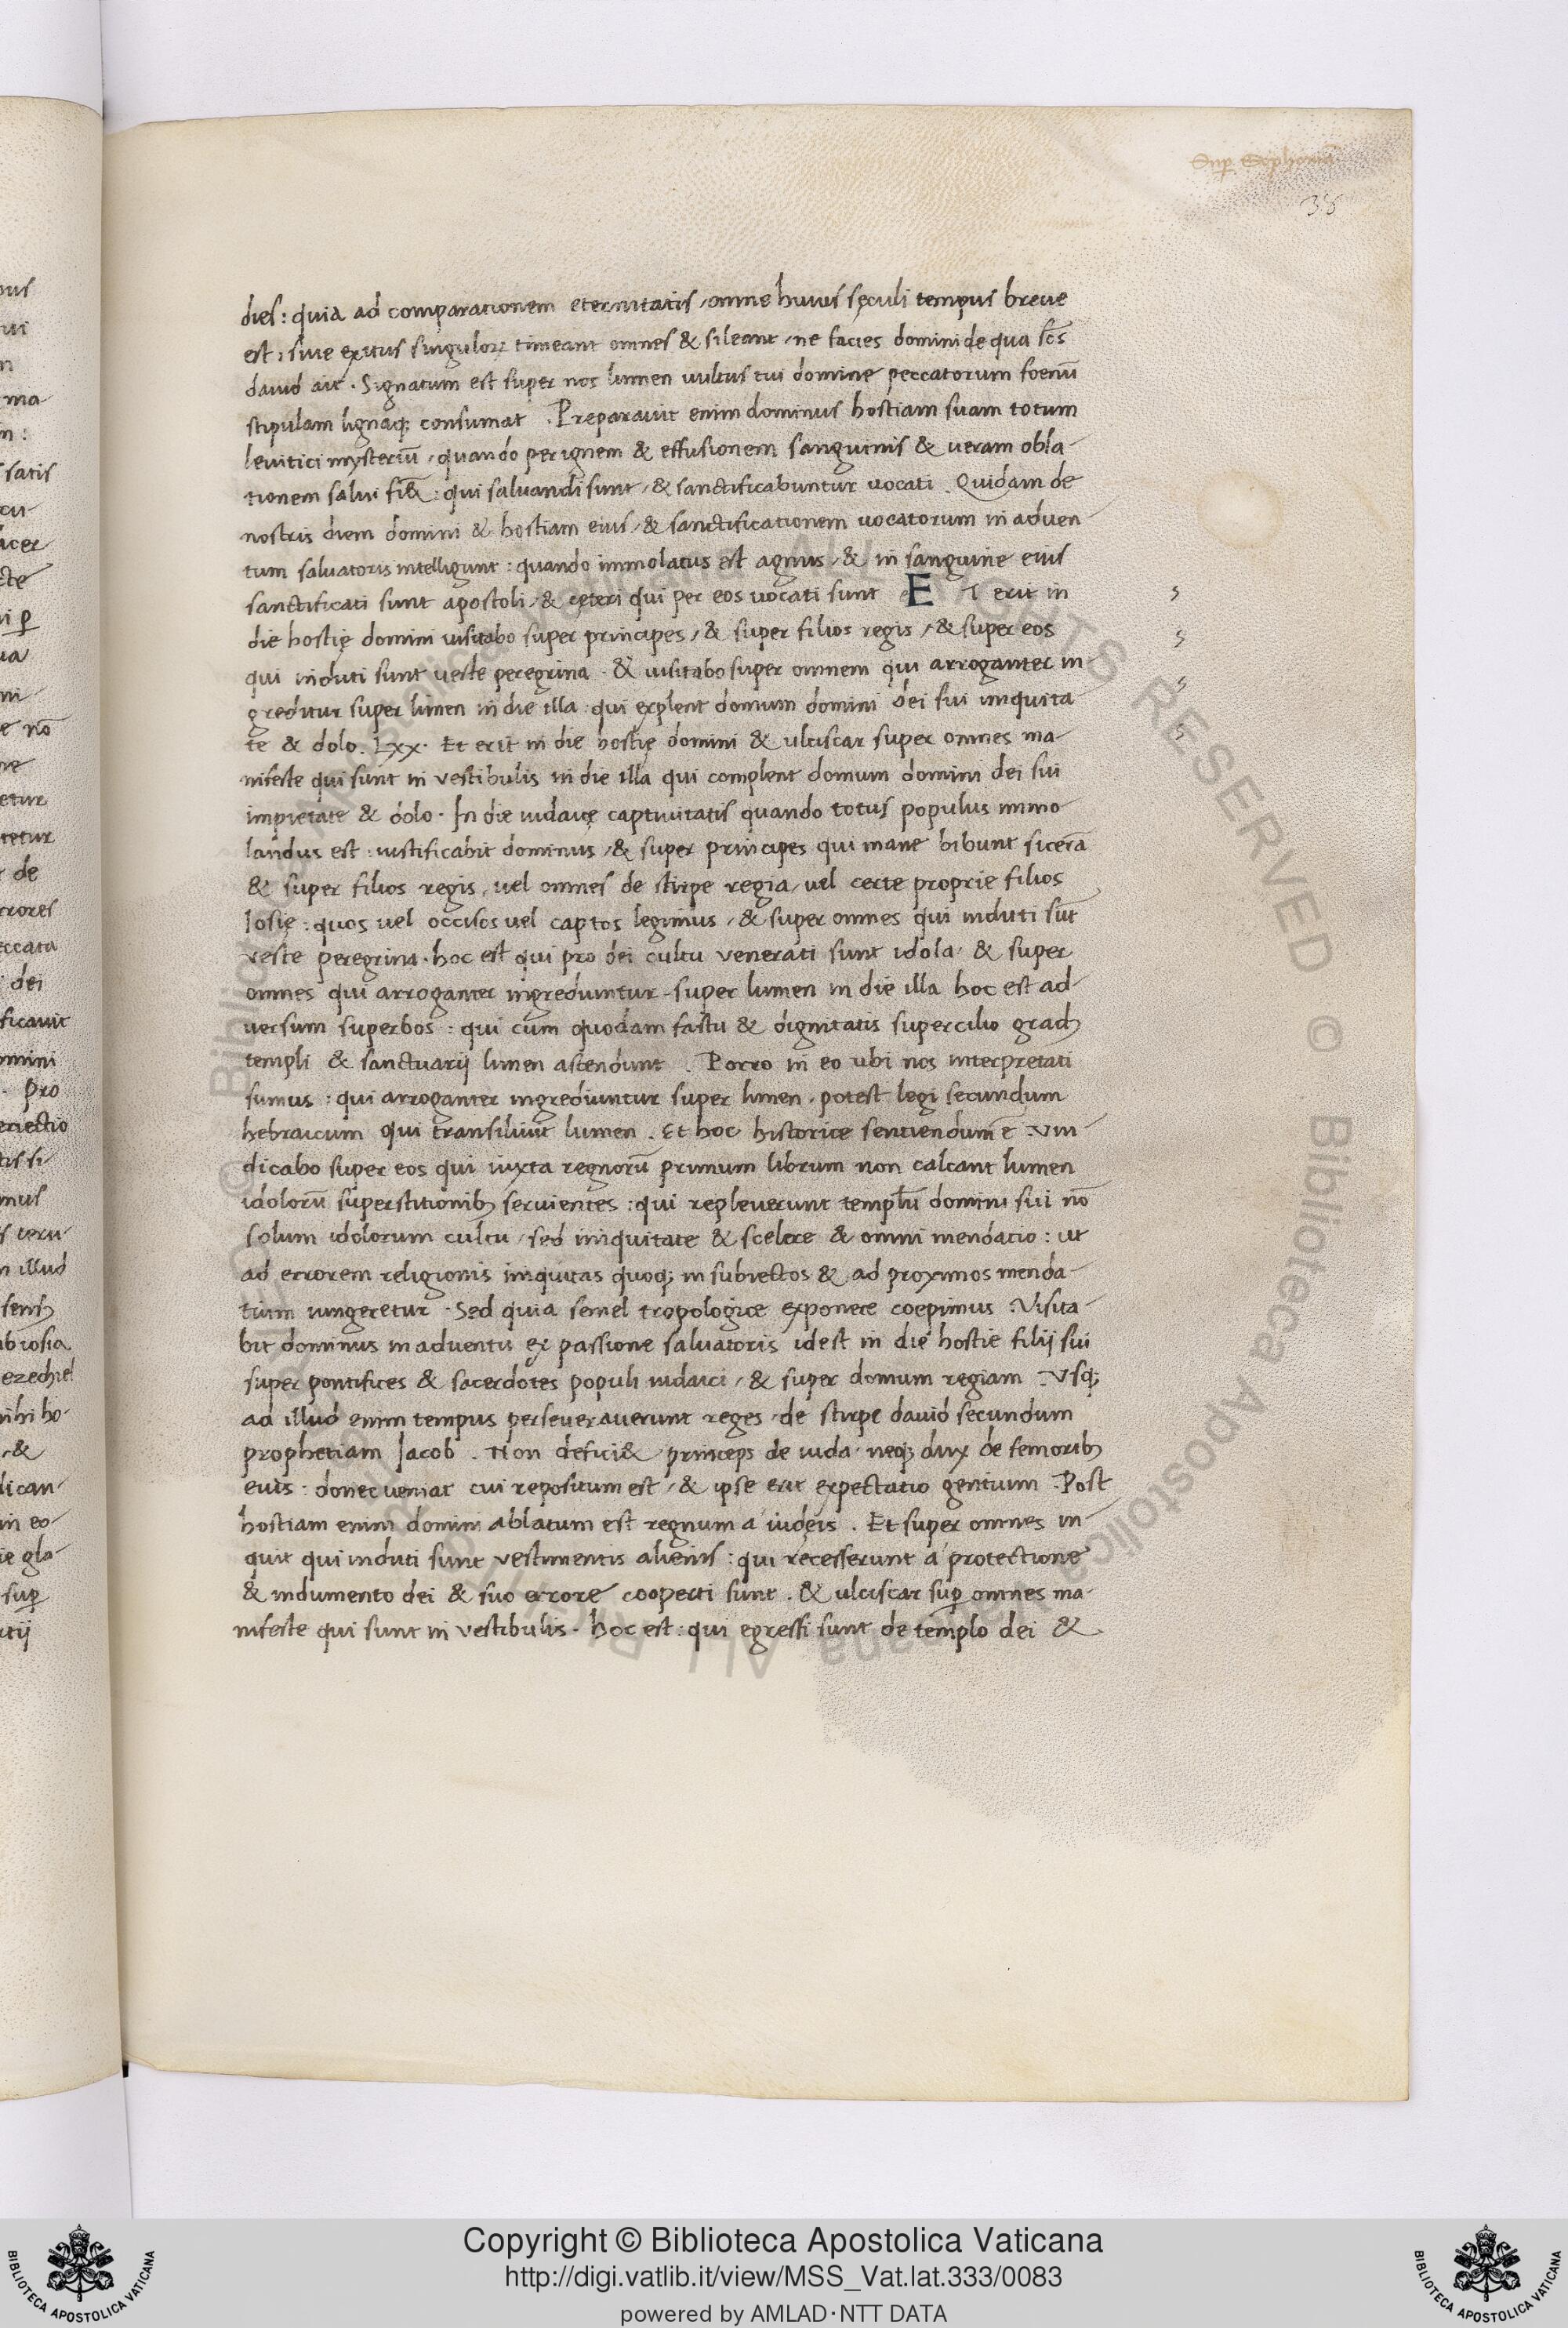 Sup Sophoniã
38
dies: quia ad comparationem eternitatis, omne huius sęculi tempus breue
est: siue exitus singuloꝝ timeant omnes & sileant, ne facies domini de qua scs̃
dauid ait. Signatum est super nos lumen uultus tui domine peccatorum foenũ
stipulam lignaq; consumat. Preparauit enim dominus hostiam suam totum
leuitici mysteriũ, quando per ignem & effusionem sanguinis & ueram obla-
tionem salui fi&: qui saluandi sunt, & sanctificabuntur uocati. Quidam de
nostris diem domini & hostiam eius, & sanctificationem uocatorum in aduen-
tum saluatoris intelligunt: quando immolatus est agnus, & in sanguine eius
sanctificati sunt apostoli, & cęteri qui per eos uocati sunt ET erit in
die hostię domini uisitabo super principes, & super filios regis, & super eos
qui induti sunt ueste peregrina. & uisitabo super omnem qui arroganter in-
greditur super limen in die illa: qui explent domum domini dei sui iniquita
te & dolo. Lxx. Et erit in die hostię domini & ulciscar super omnes ma-
nifeste qui sunt in vestibulis in die illa qui complent domum domini dei sui
impietate & dolo. In die iudaicę captiuitatis quando totus populus immo-
landus est: iustificabit dominus, & super principes qui mane bibunt sicerã
& super filios regis, uel omnes de stirpe regia, uel certe proprie filios
Iosię: quos uel occisos uel captos legimus, & super omnes qui induti sũt
veste peregrina. hoc est qui pro dei cultu venerati sunt idola. & super
omnes qui arroganter ingrediuntur super limen in die illa hoc est ad-
uersum superbos: qui cum quodam fastu & dignitatis supercilio gradꝫ
templi & sanctuarij limen ascendunt. Porro in eo ubi nos interpretati
sumus: qui arroganter ingrediuntur super limen, potest legi secundum
hebraicum qui transiliunt limen. Et hoc historice sentiendum ẽ. Vin-
dicabo super eos qui iuxta regnorũ primum librum non calcant limen
idolorũ superstitionibꝫ seruientes: qui repleuerunt templũ domini sui nõ
solum idolorum cultu, sed iniquitate & scelere & omni mendacio: ut
ad errorem religionis iniquitas quoq; in subiectos & ad proximos menda-
tium iungeretur. Sed quia semel tropologice exponere coepimus. Visita-
bit dominus in aduentu ex passione saluatoris idest in die hostie filij sui
super pontifices & sacerdotes populi iudaici, & super domum regiam. Vsq;
ad illud enim tempus perseuerauerunt reges de stirpe dauid secundum
prophetiam Jacob. Non defici& princeps de iuda neq; dux de femoribꝫ
euis: donec ueniat cui repositum est, & ipse erit expectatio gentium. Post
hostiam enim domini ablatum est regnum a iudęis. Et super omnes in-
quit qui induti sunt vestimentis alienis: qui recesserunt a protectione
& indumento dei & suo errore cooperti sunt. & ulciscar sup̱ omnes ma-
nifeste qui sunt in vestibulis. hoc est: qui egressi sunt de templo dei &
Copyright © Biblioteca Apostolica Vaticana
http://digi.vatlib.it/view/MSS_Vat.lat.333/0083
powered by AMLAD·NTT DATA